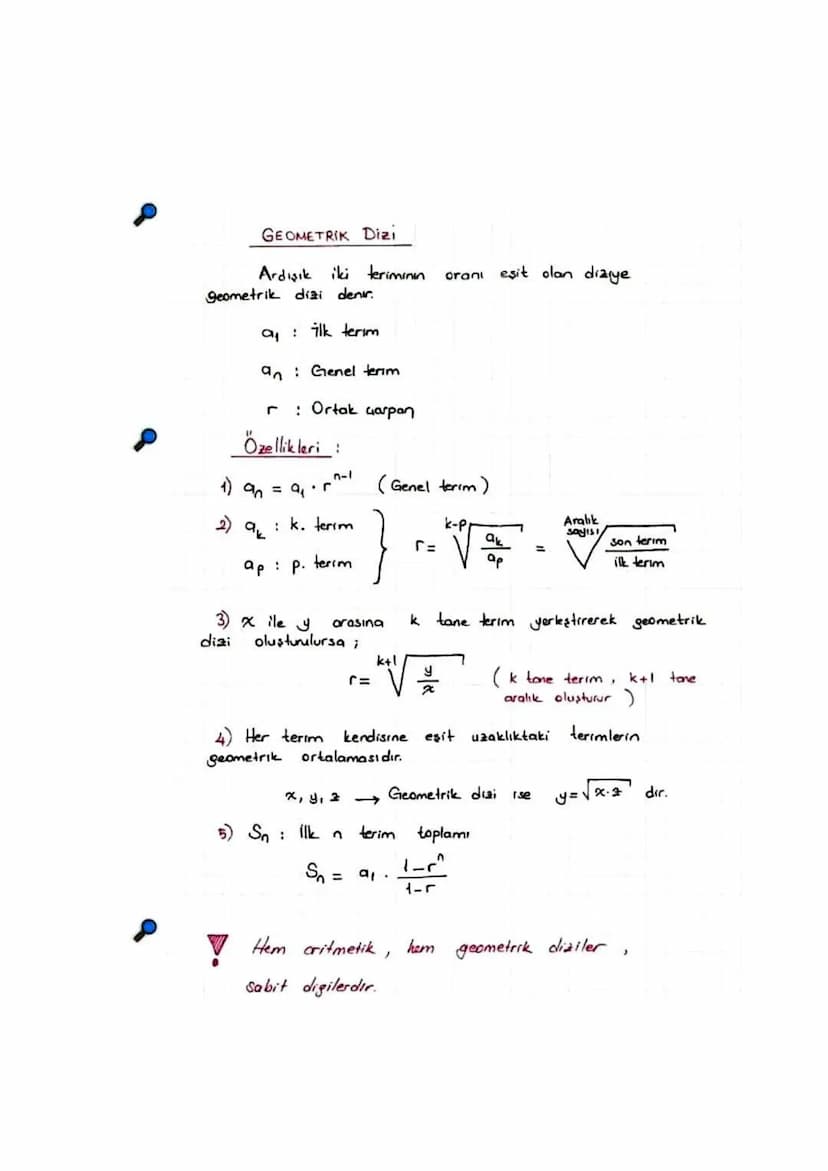 GEOMETRİK Dizi
Ardışık iki teriminin oranı eşit olan diziye
geometrik dizi denir.
a₁ : İlk terim
aₙ : Genel terim
r : Ortak çarpan
Özellikleri :
1) aₙ = a₁ · rⁿ⁻¹ (Genel terim)
2) aₖ : k. terim
aₚ : p. terim } r = ᵏ⁻ᵖ√(aₖ/aₚ) = Aralık sayısı√(son terim/ilk terim)
3) x ile y arasına k tane terim yerleştirerek geometrik
dizi oluşturulursa ;
r = ᵏ⁺¹√(y/x) ( k tane terim , k+1 tane
aralık oluşturur )
4) Her terim kendisine eşit uzaklıktaki terimlerin
geometrik ortalamasıdır.
x, y, z → Geometrik dizi ise y = √(x·z) dir.
5) Sₙ : İlk n terim toplamı
Sₙ = a₁ · (1-rⁿ)/(1-r)
! Hem aritmetik , hem geometrik diziler ,
sabit dizilerdir.